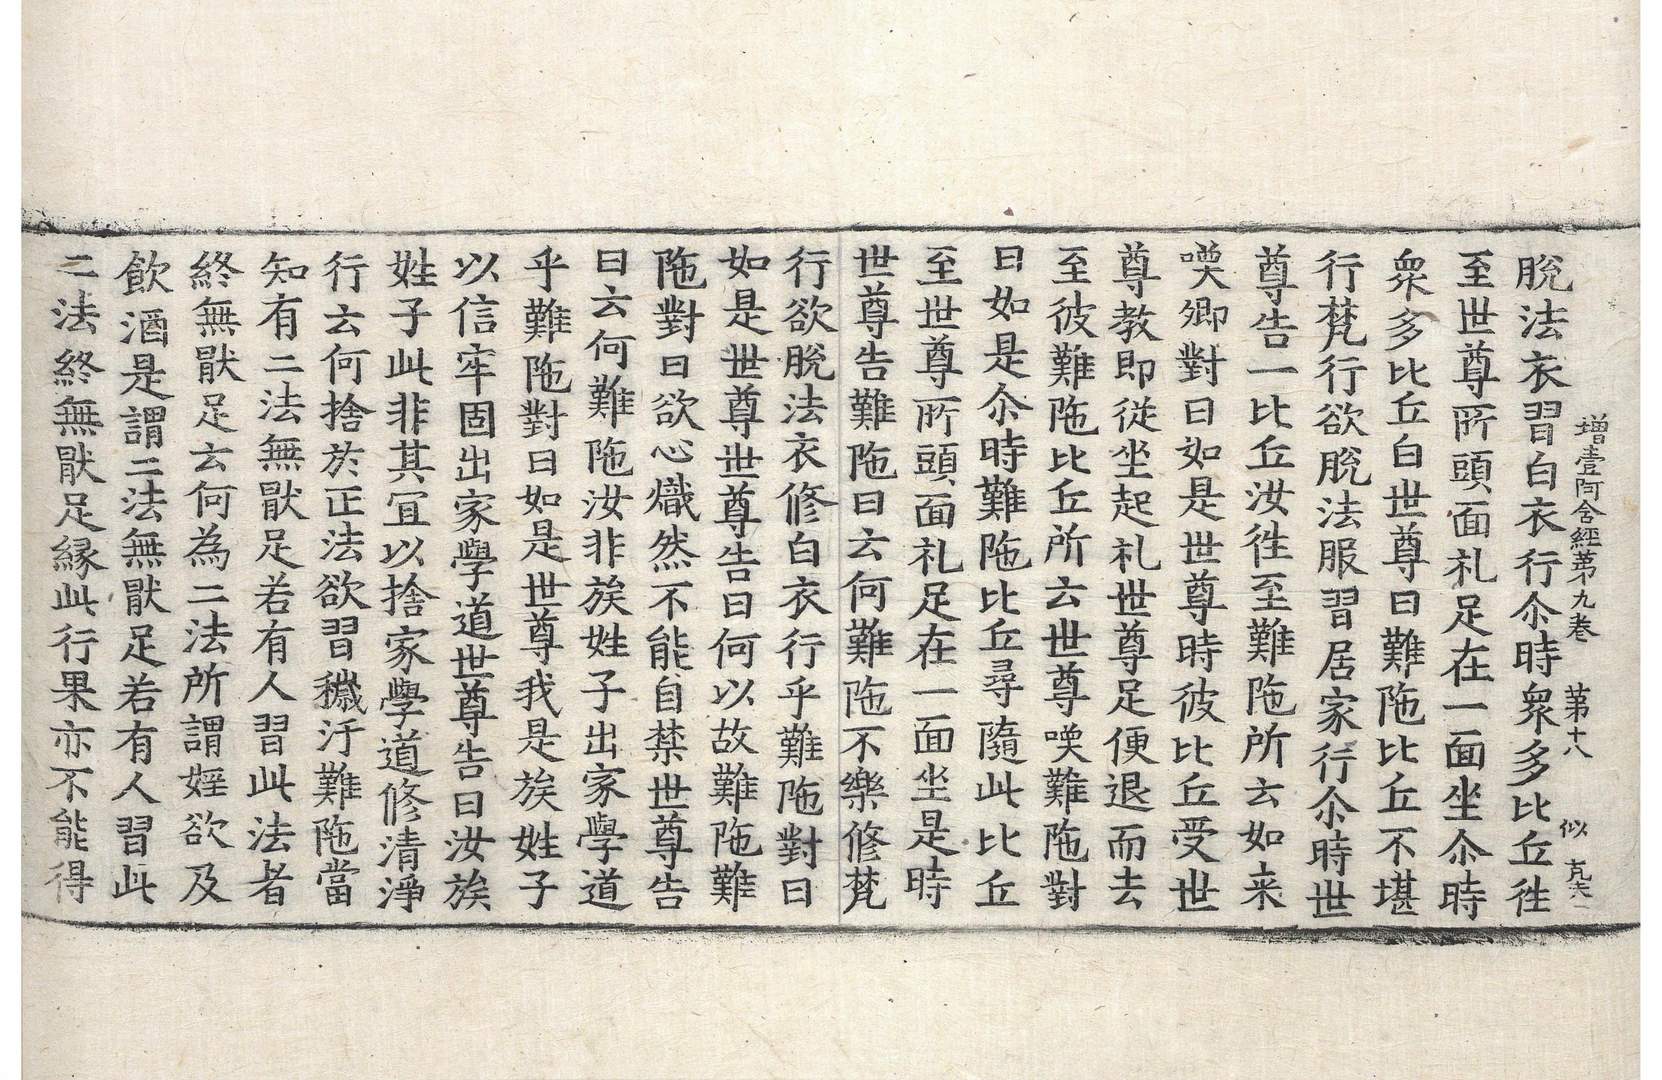 增壹阿含經苐九卷 苐十八 似
脫法衣習白衣行尒時衆多比丘徃
至世尊所頭面礼足在一面坐尒時
衆多比丘白世尊曰難陁比丘不堪
行梵行欲脫法服習居家行尒時世
尊告一比丘汝徃至難陁所云如来
喚卿對曰如是世尊時彼比丘受世
尊教即從坐起礼世尊足便退而去
至彼難陁比丘所云世尊喚難陁對
曰如是尒時難陁比丘尋隨此比丘
至世尊所頭面礼足在一面坐是時
世尊告難陁曰云何難陁不樂修梵
行欲脫法衣修白衣行乎難陁對曰
如是世尊世尊告曰何以故難陁難
陁對曰欲心熾然不能自禁世尊告
曰云何難陁汝非族姓子出家學道
乎難陁對曰如是世尊我是族姓子
以信牢固出家學道世尊告曰汝族
姓子此非其冝以捨家學道修清淨
行云何捨於正法欲習穢汙難陁當
知有二法無猒足若有人習此法者
終無猒足云何為二法所謂婬欲及
飲酒是謂二法無猒足若有人習此
二法終無猒足縁此行果亦不能得